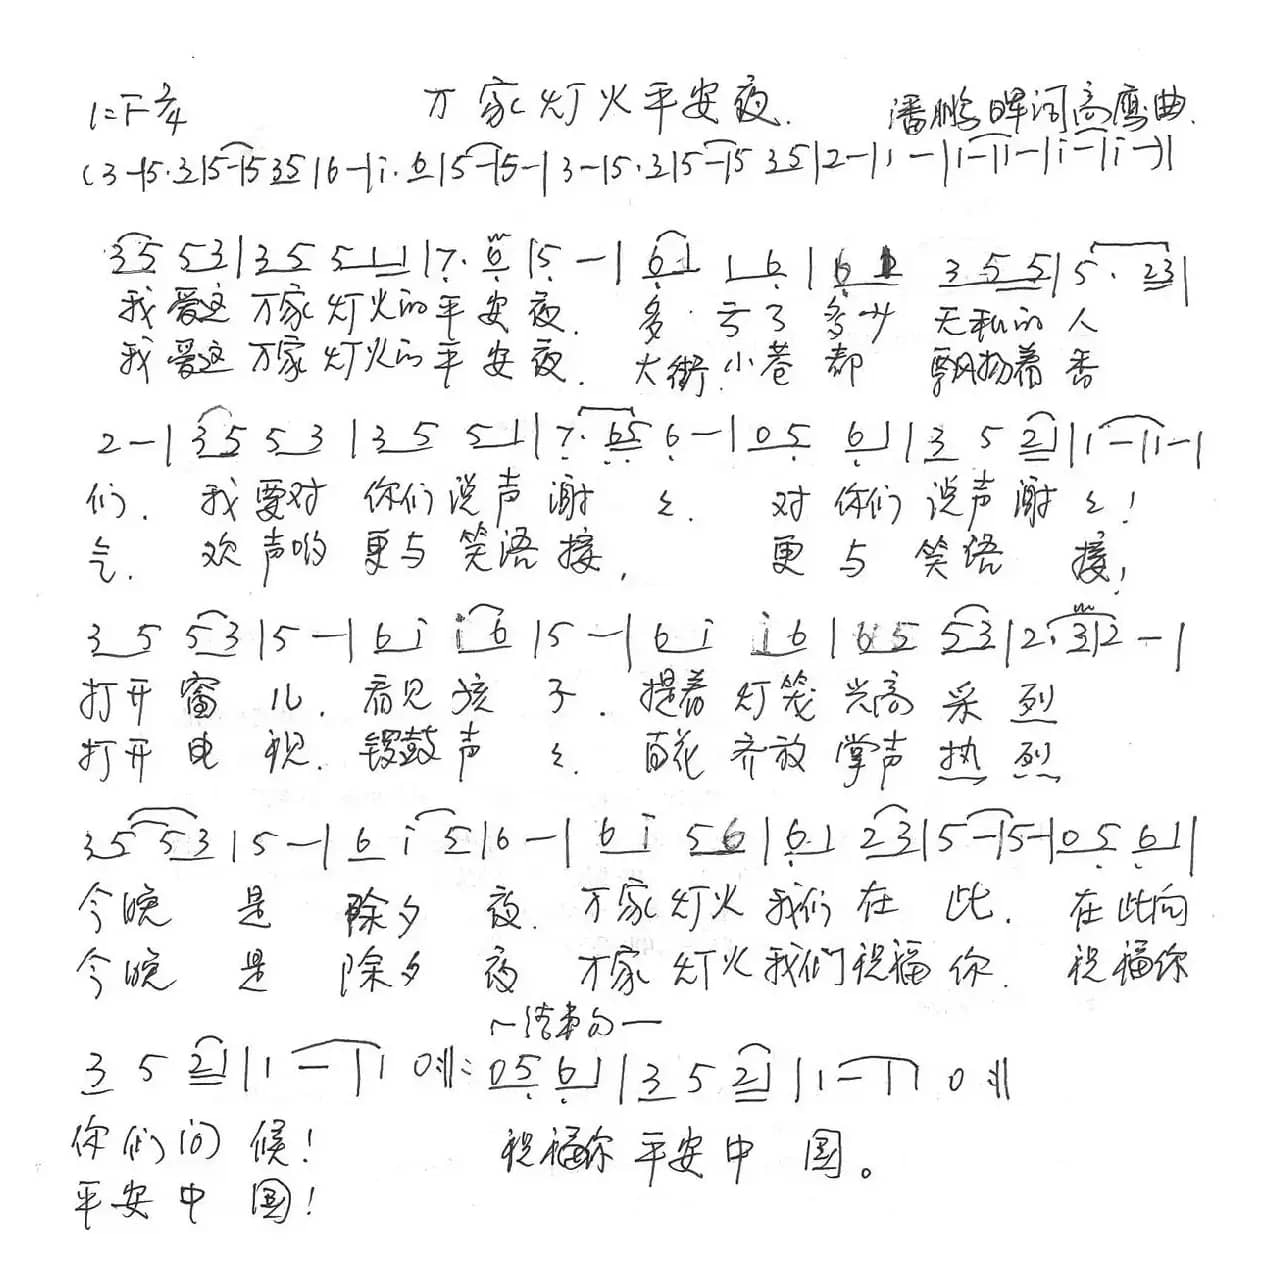 1=F 2/4 万家灯火平安夜. 潘鹏晖词 高鹰曲.
(3-|5·3|5-|5 35|6-|i·6|5-|5-|3-|5·3|5-|5 35|2-|1-|1-|1-|i-|i-)|
35 53|35 511|7·6|5-|61 16|61 355|5·23|
我爱这万家灯火的平安夜. 多亏了多少无私的人
我爱这万家灯火的平安夜. 大街小巷都飘扬着香
2-|35 53|35 51|7·65|6-|05 61|3 5 21|1-|1-|
们. 我要对你们说声谢々. 对你们说声谢々!
气. 欢声哟更与笑语接, 更与笑语接,
35 53|5-|6i i6|5-|6i i6|65 53|2·3|2-|
打开窗儿. 看见孩子. 提着灯笼兴高采烈
打开电视. 锣鼓声々. 百花齐放掌声热烈
35 53|5-|6 i 5|6-|6i 56|61 23|5-|5-|05 61|
今晚是除夕夜. 万家灯火我们在此. 在此向
今晚是除夕夜 万家灯火我们祝福你. 祝福你
结束句
3 5 21|1-|1 0:‖: 05 61|3 5 21|1-|1 0:‖
你们问候! 祝福你平安中国。
平安中国!